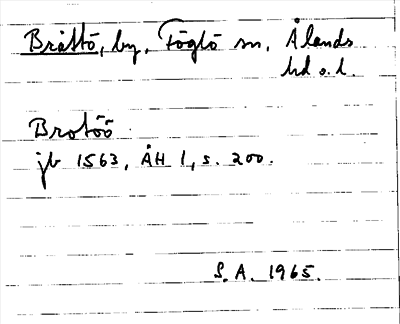 Bråttö, by, Föglö sn, Ålands
hd o. l.
Brotöö
jb 1563, ÅH 1, s. 200.
S. A. 1965.